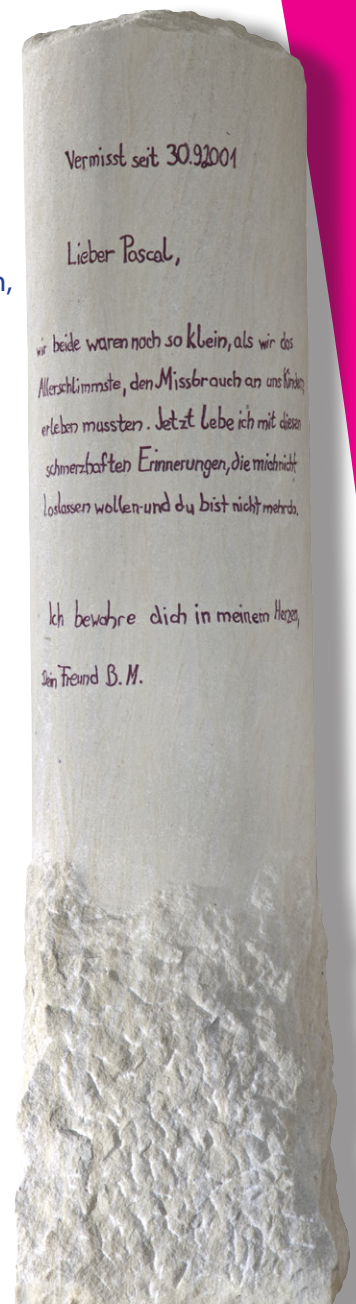 Vermisst seit 30.9.2001
Lieber Pascal,
wir beide waren noch so klein, als wir das
Allerschlimmste, den Missbrauch an uns Kindern,
erleben mussten. Jetzt lebe ich mit diesen
schmerzhaften Erinnerungen, die mich nicht
loslassen wollen-und du bist nicht mehr da.
Ich bewahre dich in meinem Herzen,
Dein Freund B. M.